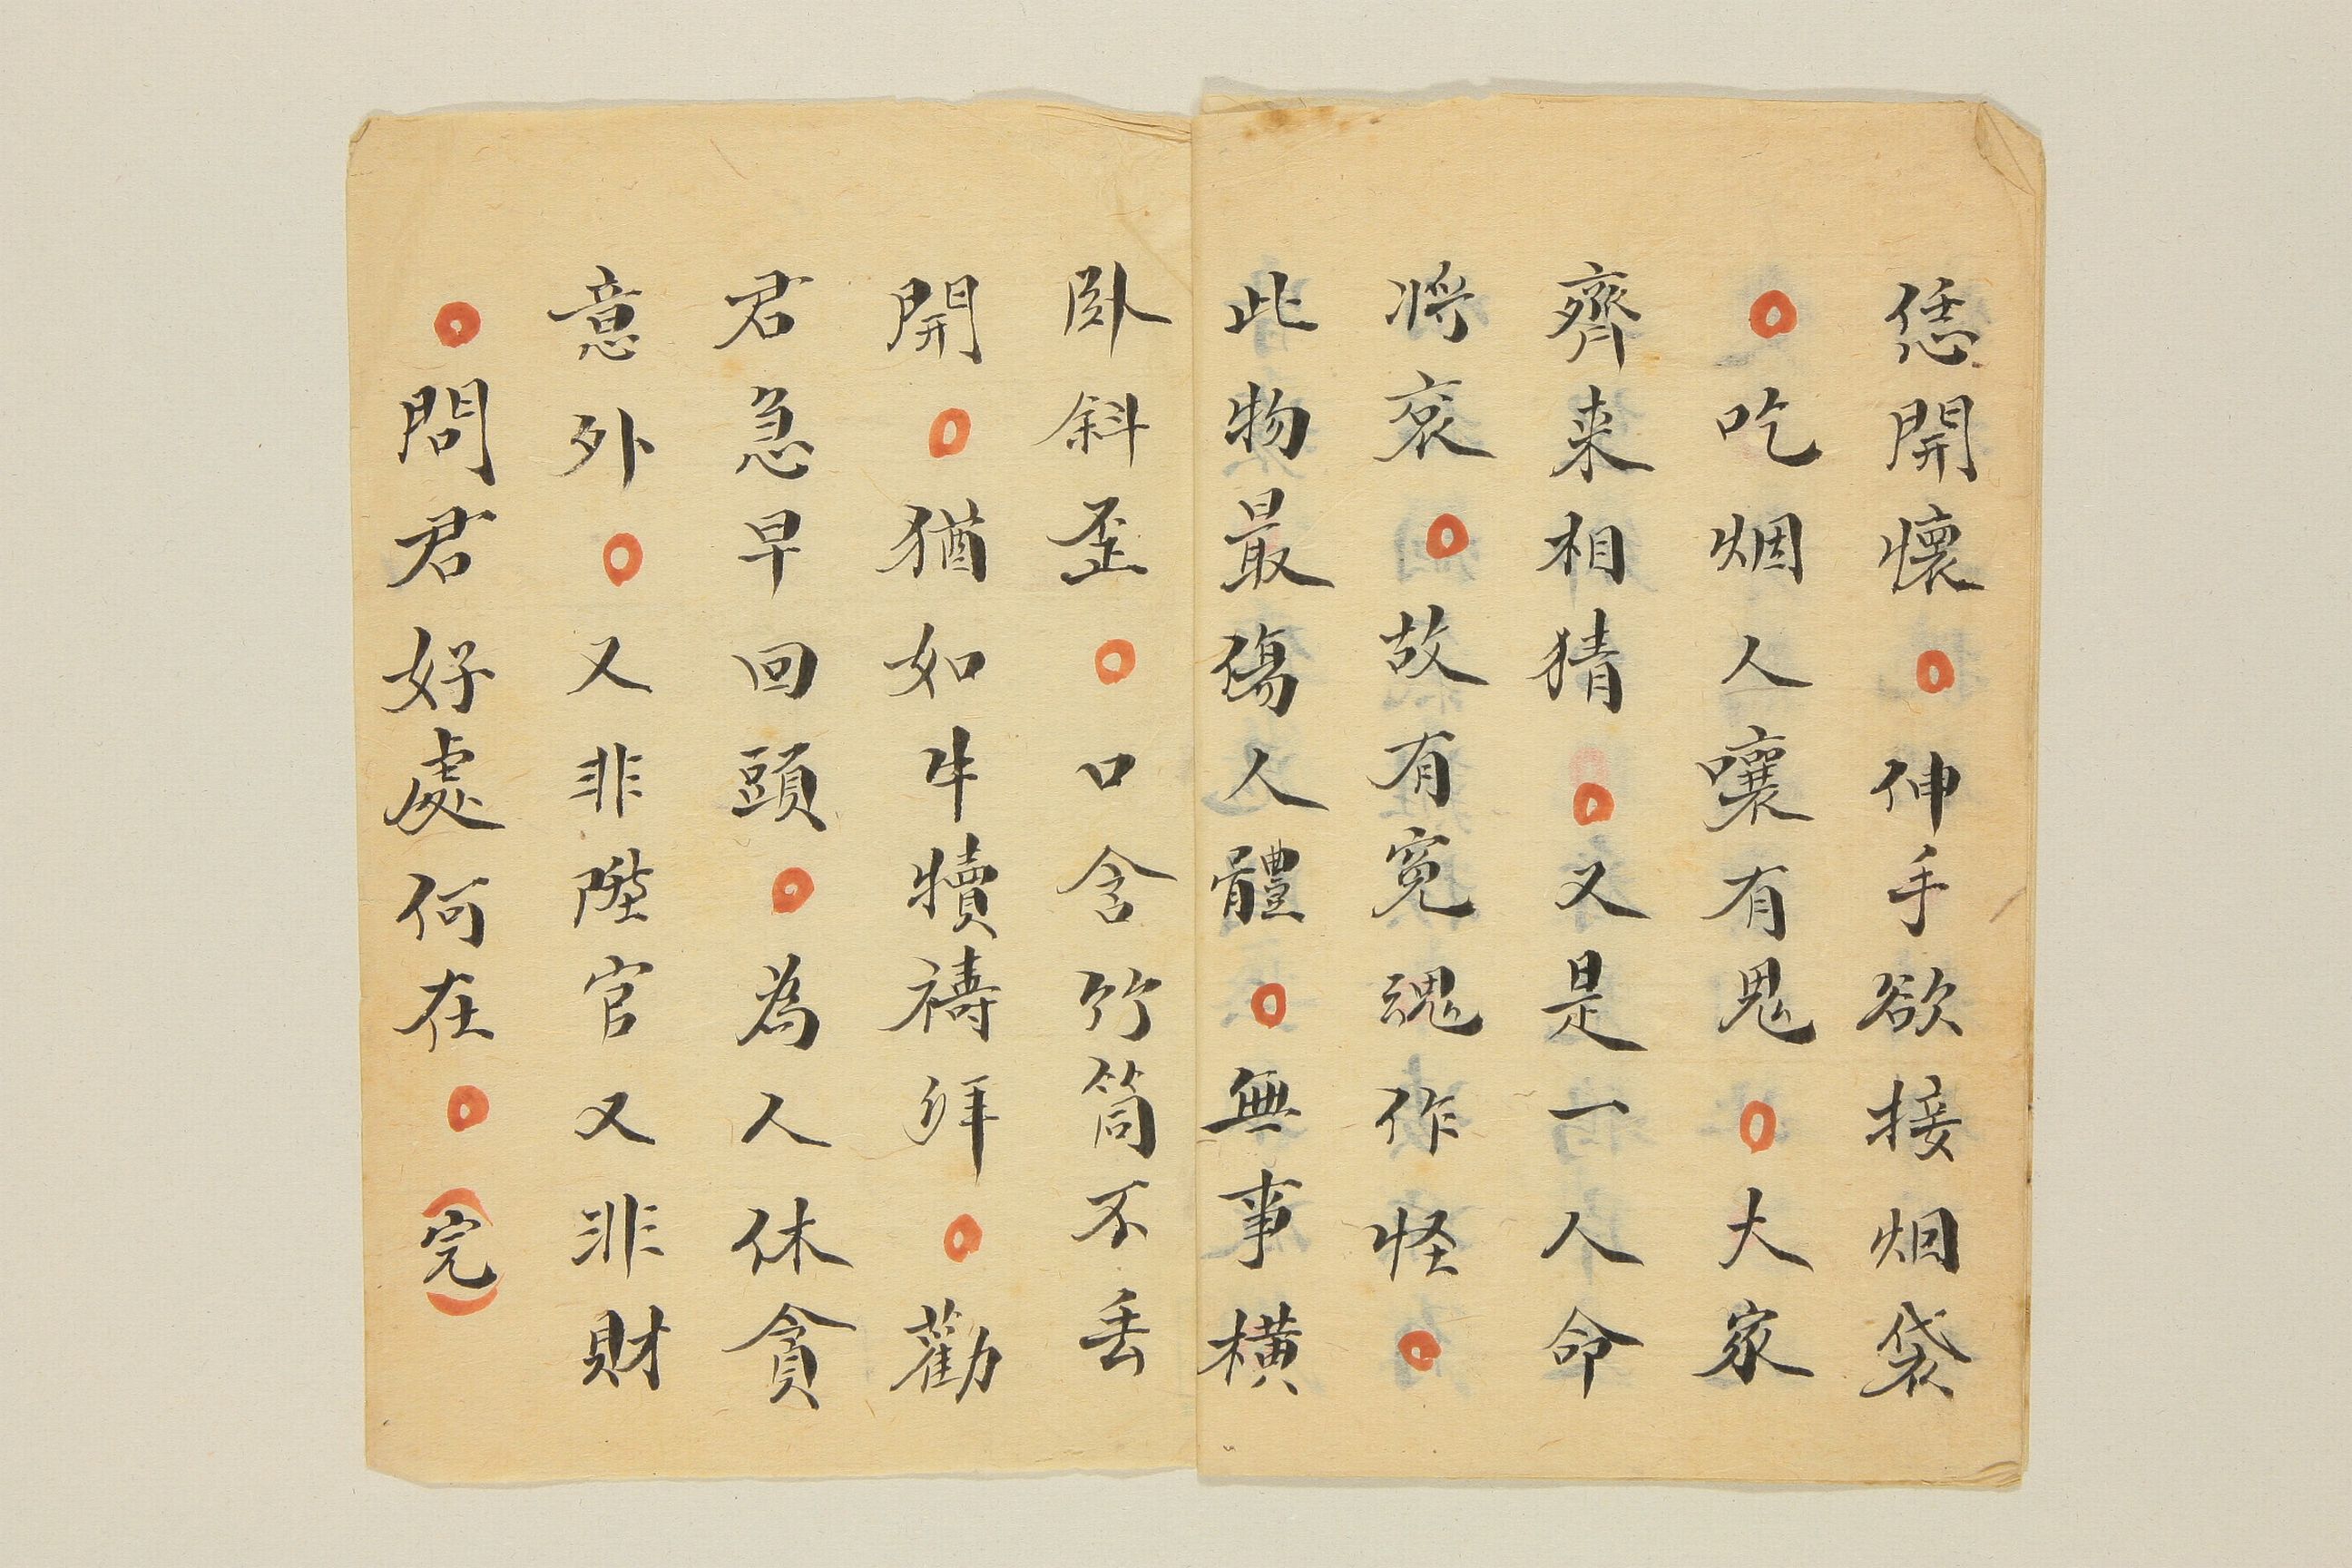 恁開懷○伸手欲接烟袋
○吃烟人嚷有鬼○大家
齊来相猜○又是一人命
将哀○故有寃魂作怪○
此物最傷人體○無事橫
卧斜歪○口含竹筒不丢
開○猶如牛犢禱拜○勸
君急早回頭○為人休貪
意外○又非陞官又非財
○問君好處何在○(完)